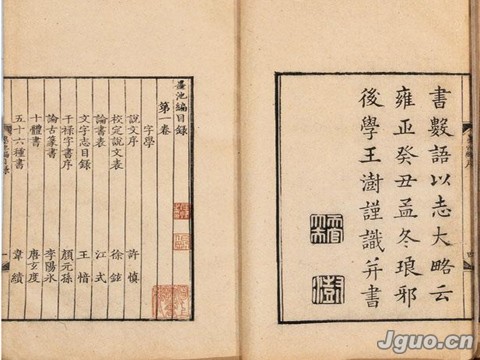 書數語以志大略云
雍正癸丑孟冬琅邪
後學王澍謹識并書
墨池編目錄
第一卷
字學
說文序 許慎
校定說文表 徐鉉
論書表 江式
文字志目錄 王愔
干祿字書序 顏元孫
論古篆書 李陽氷
十體書 唐玄度
五十六種書 韋續
Jguo.cn